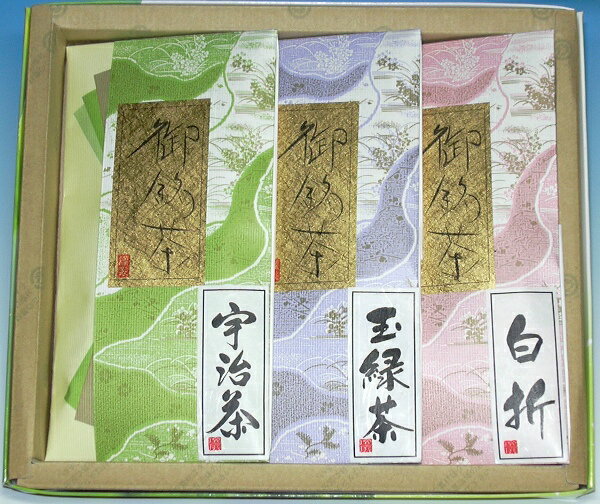 御銘茶
宇治茶
御銘茶
玉緑茶
御銘茶
白折